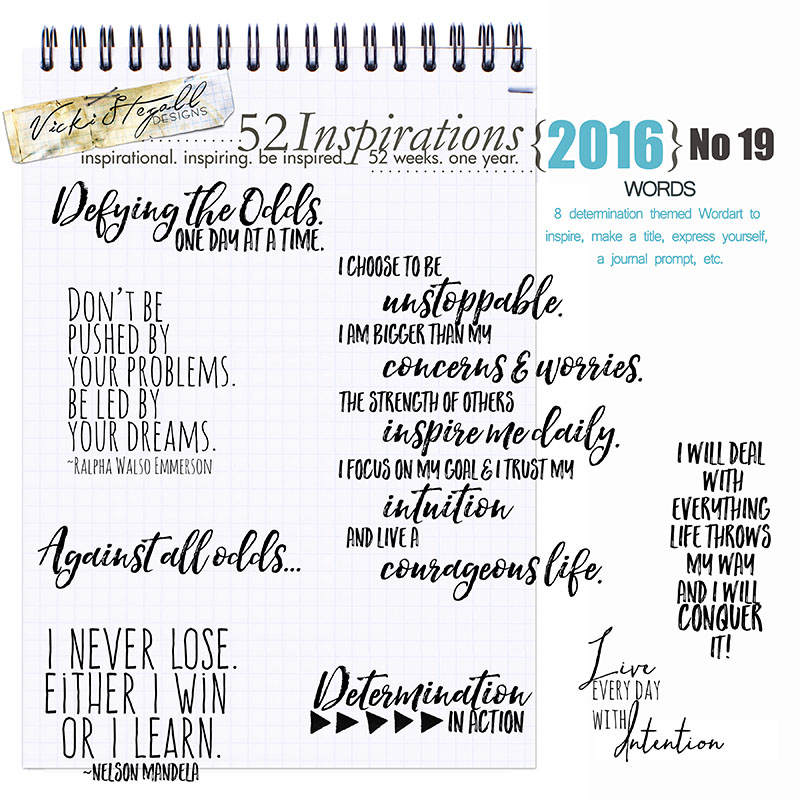 Vicki Stegall
DESIGNS
52 Inspirations {2016} No 19
inspirational. inspiring. be inspired. 52 weeks. one year.
WORDS
8 determination themed Wordart to
inspire, make a title, express yourself,
a journal prompt, etc.
Defying the Odds.
ONE DAY AT A TIME.
DON'T BE
PUSHED BY
YOUR PROBLEMS.
BE LED BY
YOUR DREAMS.
~RALPHA WALSO EMMERSON
Against all odds...
I NEVER LOSE.
EiTHER I WiN
OR I LEARN.
~NELSON MANDELA
I CHOOSE TO BE
unstoppable.
I AM BIGGER THAN MY
concerns & worries.
THE STRENGTH OF OTHERS
inspire me daily.
I FOCUS ON MY GOAL & I TRUST MY
intuition
AND LIVE A
courageous life.
Determination
IN ACTION
I WILL DEAL
WITH
EVERYTHING
LIFE THROWS
MY WAY
AND I WILL
CONQUER
IT!
Live
EVERY DAY
WITH
Intention